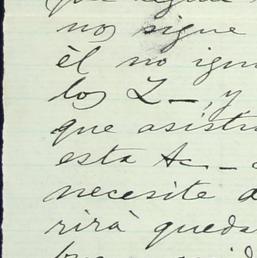 nos sigue
él no igu
los Z—, y
que asistı
esta Ac—
necesite
rirà queda